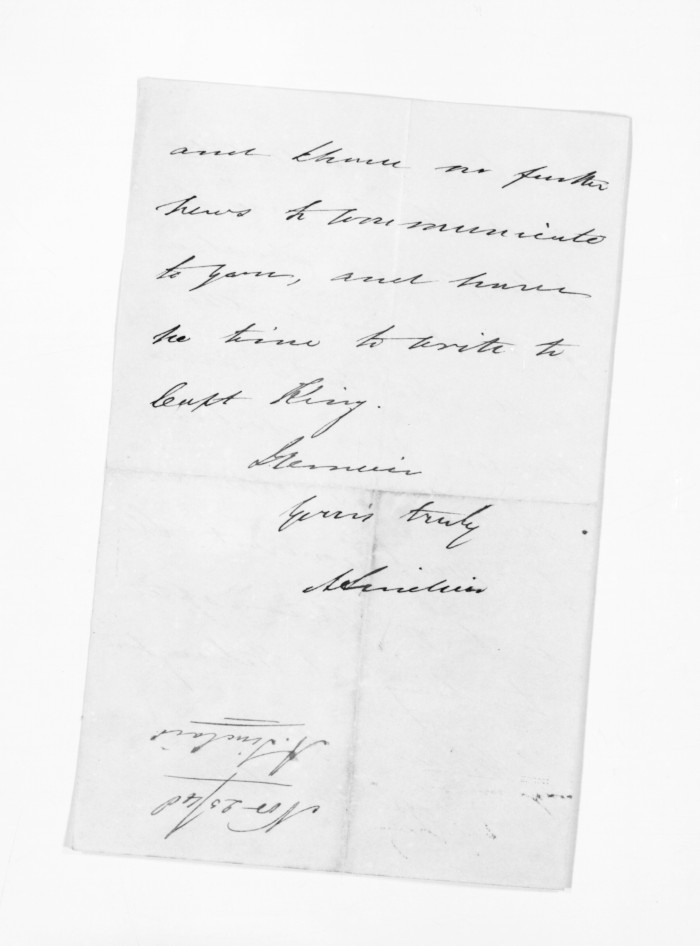 and I have no further
news to communicate
to you, and have
no time to write to
Capt King.
I remain
Yours truly
A Sinclair
A. Sinclair
Nov 23/48